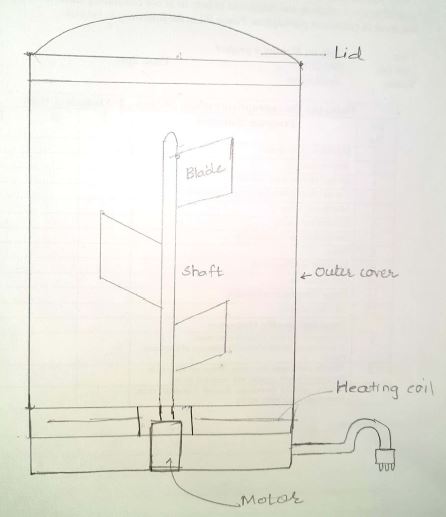 Lid
Blade
Shaft
Outer cover
Heating coil
Motor